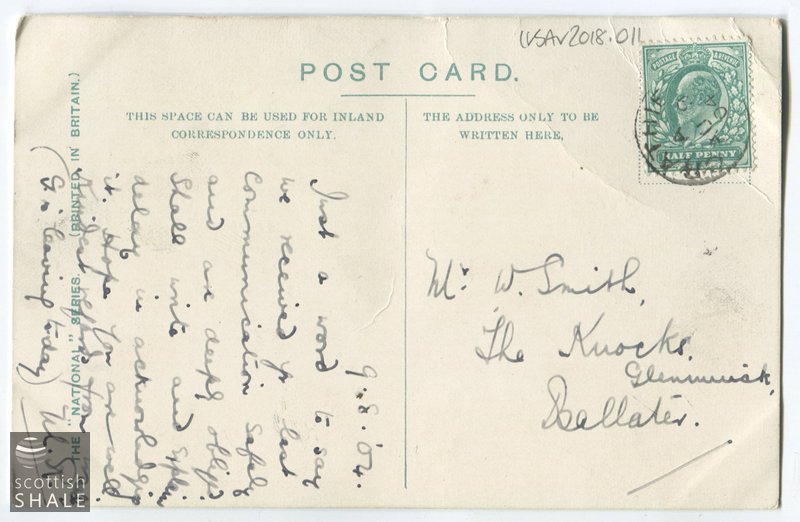 LVSAV2018.011
POST CARD.
THIS SPACE CAN BE USED FOR INLAND
CORRESPONDENCE ONLY.
THE ADDRESS ONLY TO BE
WRITTEN HERE,
POSTAGE & REVENUE
HALF PENNY
9.8.04.
Just a word to say
we received yr last
Communication safely
and are deeply oblig'd
Shall write and explain
delay in acknowledging
it. Hope you are well
Kindest regards from
(G. is leaving today)
Mr W. Smith,
The Knocks.
Glenmuick,
Ballater.
THE "NATIONAL" SERIES. (PRINTED IN BRITAIN.)
scottish
SHALE